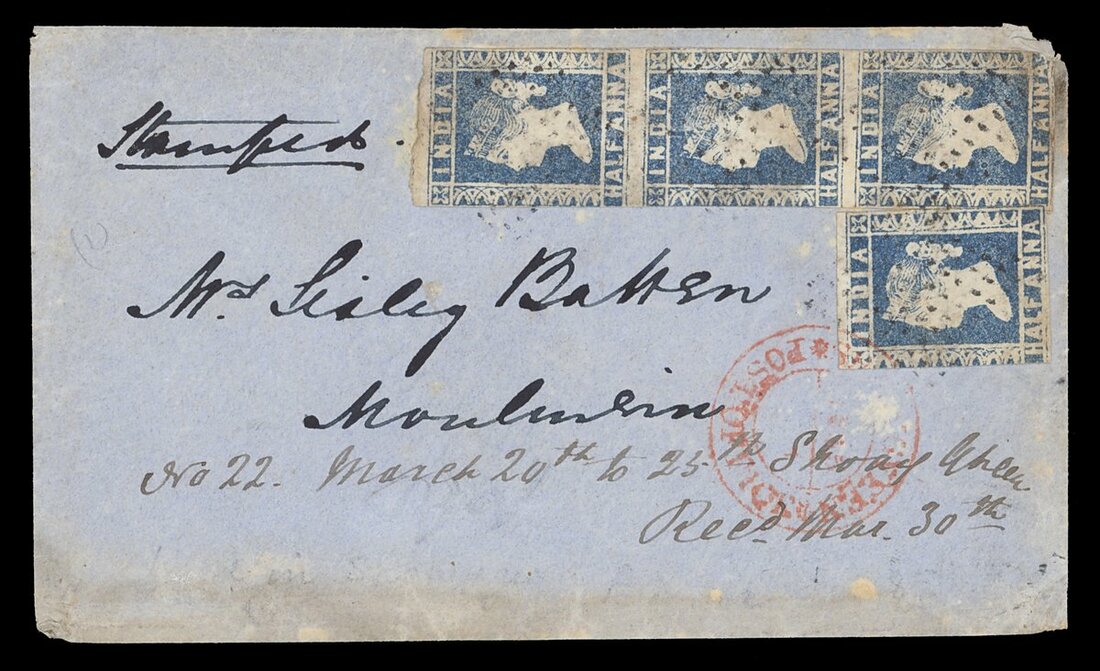 Stamped.
INDIA HALF ANNA
INDIA HALF ANNA
INDIA HALF ANNA
INDIA HALF ANNA
Mrs Batten
Moulmein
No 22. March 20th to 25th Shoay Gheen
Recd. Mar. 30th
POST